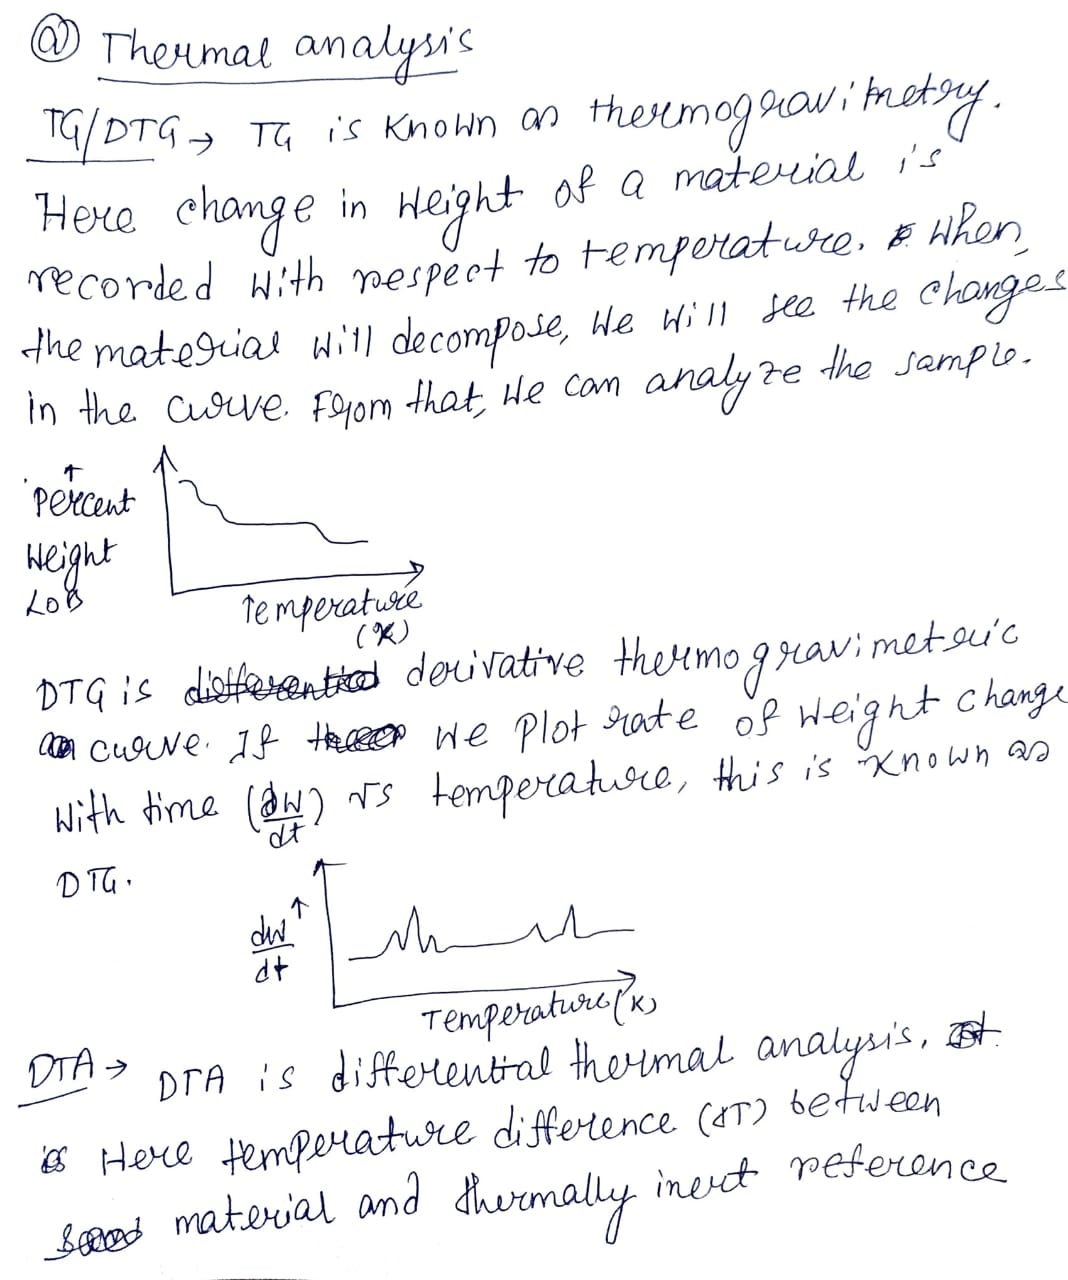 @ Thermal analysis
TG/DTG → TG is known as thermogravimetry.
Here change in weight of a material is
recorded with respect to temperature. When
the material will decompose, we will see the changes
in the curve. From that, we can analyze the sample.
↑
Percent
Weight
Loss
Temperature
(K)
DTG is derivative thermogravimetric
curve. If we plot rate of weight change
with time (dw/dt) vs temperature, this is known as
DTG.
dw/dt ↑
Temperature (K)
DTA → DTA is differential thermal analysis,
Here temperature difference (dT) between
material and thermally inert reference